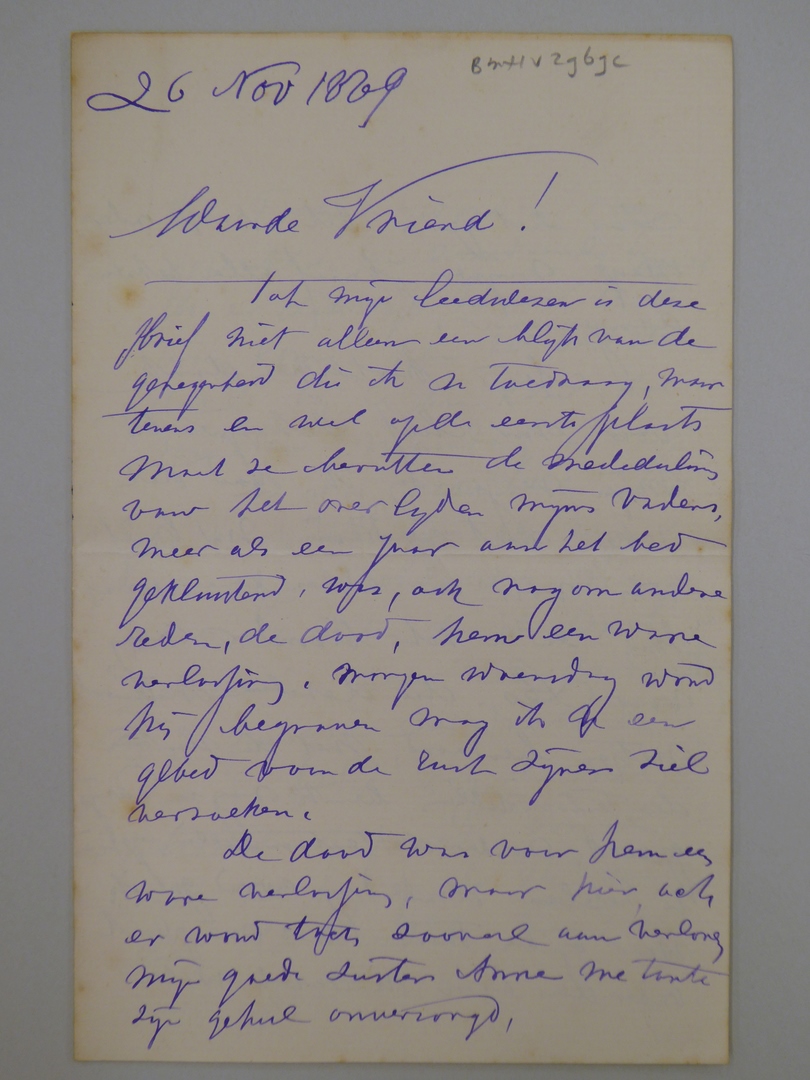 26 Nov 1869
Waarde Vriend!
Tot mijn leedwezen is deze
brief niet alleen een blijk van de
genegenheid die ik u toedraag, maar
tevens en wel op de eerste plaats
moet ze bevatten de mededeeling
van het overlyden mijns Vaders,
meer als een jaar aan het bed
gekluisterd, was, ook nog om andere
reden, de dood, hem een ware
verlossing. Morgen woensdag word
hij begraven mag ik U een
gebed voor de rust zijner ziel
verzoeken.
De dood was voor hem een
ware verlossing, maar hier, ach,
er word toch zooveel aan verloren
mijn goede zusters Anna me tante
zijn geheel onverzorgd,